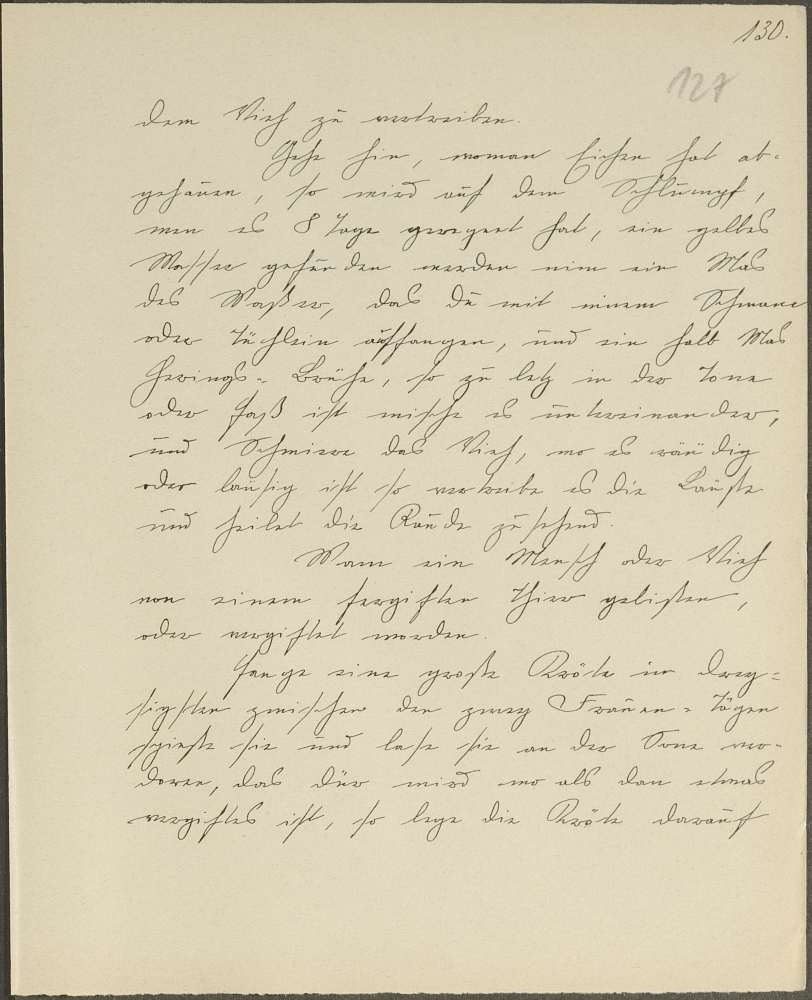 130.
127
dem Vieh zu vertreiben.
Gehe hin, woman Eichen hat ab-
gehauen, so wird auf dem Schlumpf,
wen es 8 Tage geregnet hat, ein gelbes
Wasser gefunden werden nim ein Mas
des Waßer, das du mit einem Schwame
oder Tüchlein auffangen, und ein halb Mas
Herings-Brühe, so zu letz in der Tone
oder Faß ist mische es untereinander,
und Schmiere das Vieh, wo es räudig
oder lausig ist so vertreibe es die Läuße
und heilet die Räude zusehend.
Wann ein Mensch oder Vieh
von einem fergiften Thier gebißen,
oder vergiftet worden.
Fange eine große Kröte im Drey-
sigsten zwischen den zwey Frauen-Tägen
spieße sie und lase sie an der Sone ver-
doren, das dür wird wo als dan etwas
vergiftes ist, so lege die Kröte darauf